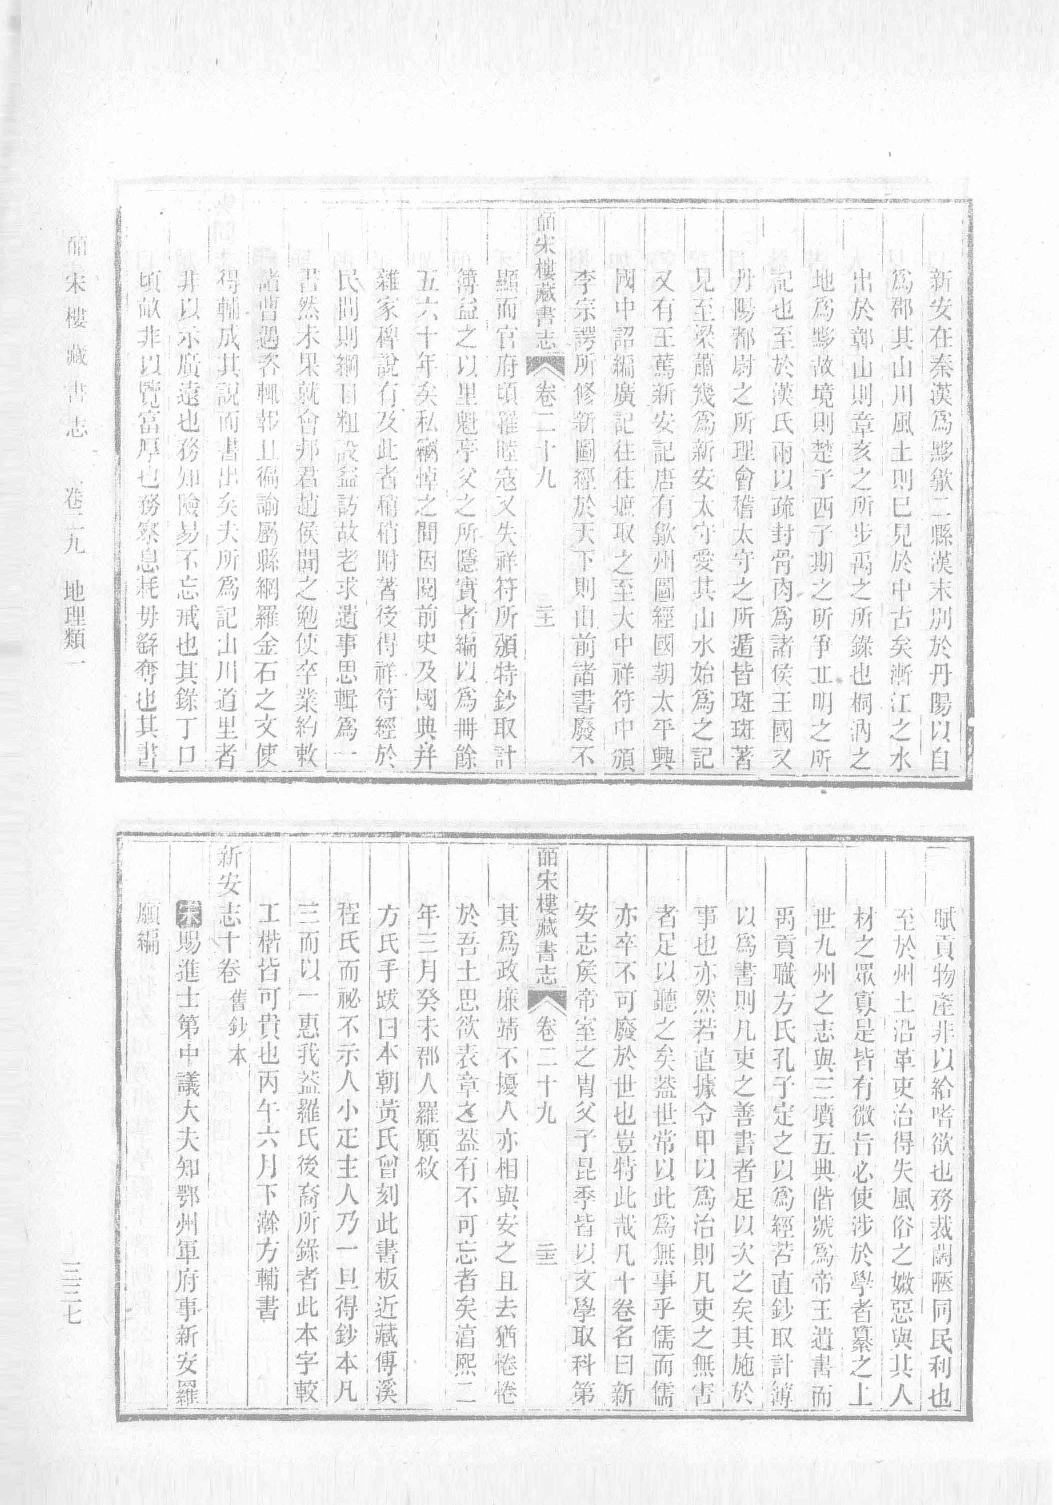 新安在秦漢爲黟歙二縣漢末别於丹陽以自
爲郡其山川風土則已見於中古矣漸江之水
出於鄣山則章亥之所步禹之所錄也桐汭之
地爲黟故境則楚子西子期之所爭丘明之所
記也至於漢氏兩以疏封骨肉爲諸侯王國又
丹陽都尉之所理會稽太守之所遁皆斑斑著
見至梁蕭幾爲新安太守愛其山水始爲之記
又有王篤新安記唐有歙州圖經國朝太平興
國中詔編廣記往往摭取之至大中祥符中頒
李宗諤所修新圖經於天下則由前諸書廢不
皕宋樓藏書志 卷二十九 二十一
顯而官府頃罹睦寇又失祥符所頒特鈔取計
簿益之以里魁亭父之所隱實者編以爲冊餘
五六十年矣私竊悼之間因閱前史及國典幷
雜家稗說有及此者稍稍附著後得祥符經於
民間則綱目粗設益訪故老求遺事思輯爲一
書然未果就會邦君趙侯聞之勉使卒業約敕
諸曹遇咨輒報且徧諭屬縣網羅金石之文使
得輔成其說而書出矣夫所爲記山川道里者
非以示廣遠也務知險易不忘戒也其錄丁口
頃畝非以覽富厚也務察息耗毋繇奪也其書
賦貢物產非以給嗜欲也務裁闊匭同民利也
至於州土沿革吏治得失風俗之媺惡與其人
材之眾寡是皆有微旨必使涉於學者纂之上
世九州之志與三墳五典偕號爲帝王遺書而
禹貢職方氏孔子定之以爲經若直鈔取計簿
以爲書則凡吏之善書者足以次之矣其施於
事也亦然若直據令甲以爲治則凡吏之無害
者足以聽之矣葢世常以此爲無事乎儒而儒
亦卒不可廢於世也豈特此哉凡十卷名曰新
安志侯帝室之胄父子昆季皆以文學取科第
皕宋樓藏書志 卷二十九 二十二
其爲政廉靖不擾人亦相與安之且去猶惓惓
於吾土思欲表章之葢有不可忘者矣淳熙二
年三月癸未郡人羅願敘
方氏手跋曰本朝黃氏曾刻此書板近藏傅溪
程氏而祕不示人小疋主人乃一旦得鈔本凡
三而以一惠我葢羅氏後裔所錄者此本字較
工楷皆可貴也丙午六月下澣方輔書
新安志十卷 舊鈔本
宋賜進士第中議大夫知鄂州軍府事新安羅
願編
皕宋樓藏書志 卷二九 地理類一
三三七